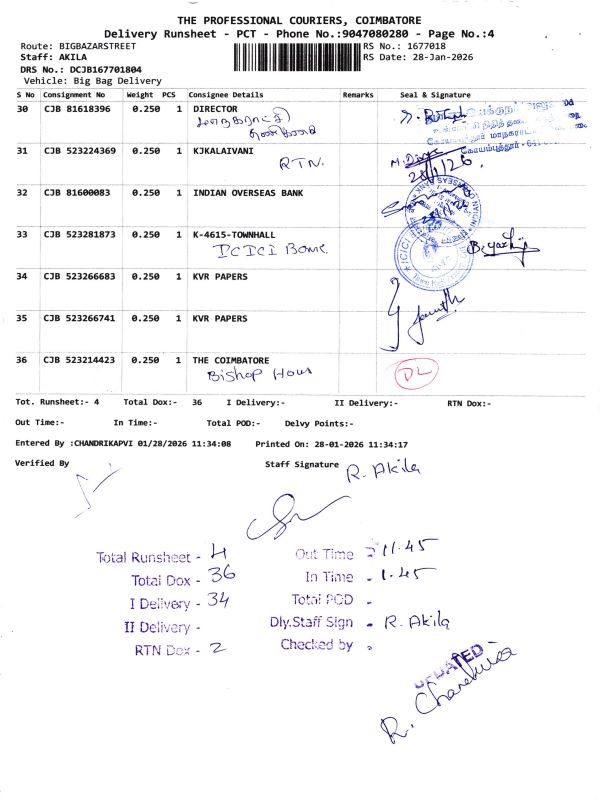 THE PROFESSIONAL COURIERS, COIMBATORE
Delivery Runsheet - PCT - Phone No.:9047080280 - Page No.:4
Route: BIGBAZARSTREET
RS No.: 1677018
Staff: AKILA
RS Date: 28-Jan-2026
DRS No.: DCJB167701804
Vehicle: Big Bag Delivery
S No Consignment No Weight PCS Consignee Details Remarks Seal & Signature
30 CJB 81618396 0.250 1 DIRECTOR
31 CJB 523224369 0.250 1 KJKALAIVANI
RTN.
32 CJB 81600083 0.250 1 INDIAN OVERSEAS BANK
33 CJB 523281873 0.250 1 K-4615-TOWNHALL
ICICI
34 CJB 523266683 0.250 1 KVR PAPERS
35 CJB 523266741 0.250 1 KVR PAPERS
36 CJB 523214423 0.250 1 THE COIMBATORE
Bishop Hous
DL
Tot. Runsheet:- 4 Total Dox:- 36 I Delivery:- II Delivery:- RTN Dox:-
Out Time:- In Time:- Total POD:- Delvy Points:-
Entered By :CHANDRIKAPVI 01/28/2026 11:34:08 Printed On: 28-01-2026 11:34:17
Verified By Staff Signature R. Akila
Total Runsheet - 4
Total Dox - 36
I Delivery - 34
II Delivery -
RTN Dox - 2
Out Time - 11.45
In Time - 1.45
Total POD -
Dly.Staff Sign - R. Akila
Checked by -
UPDATED